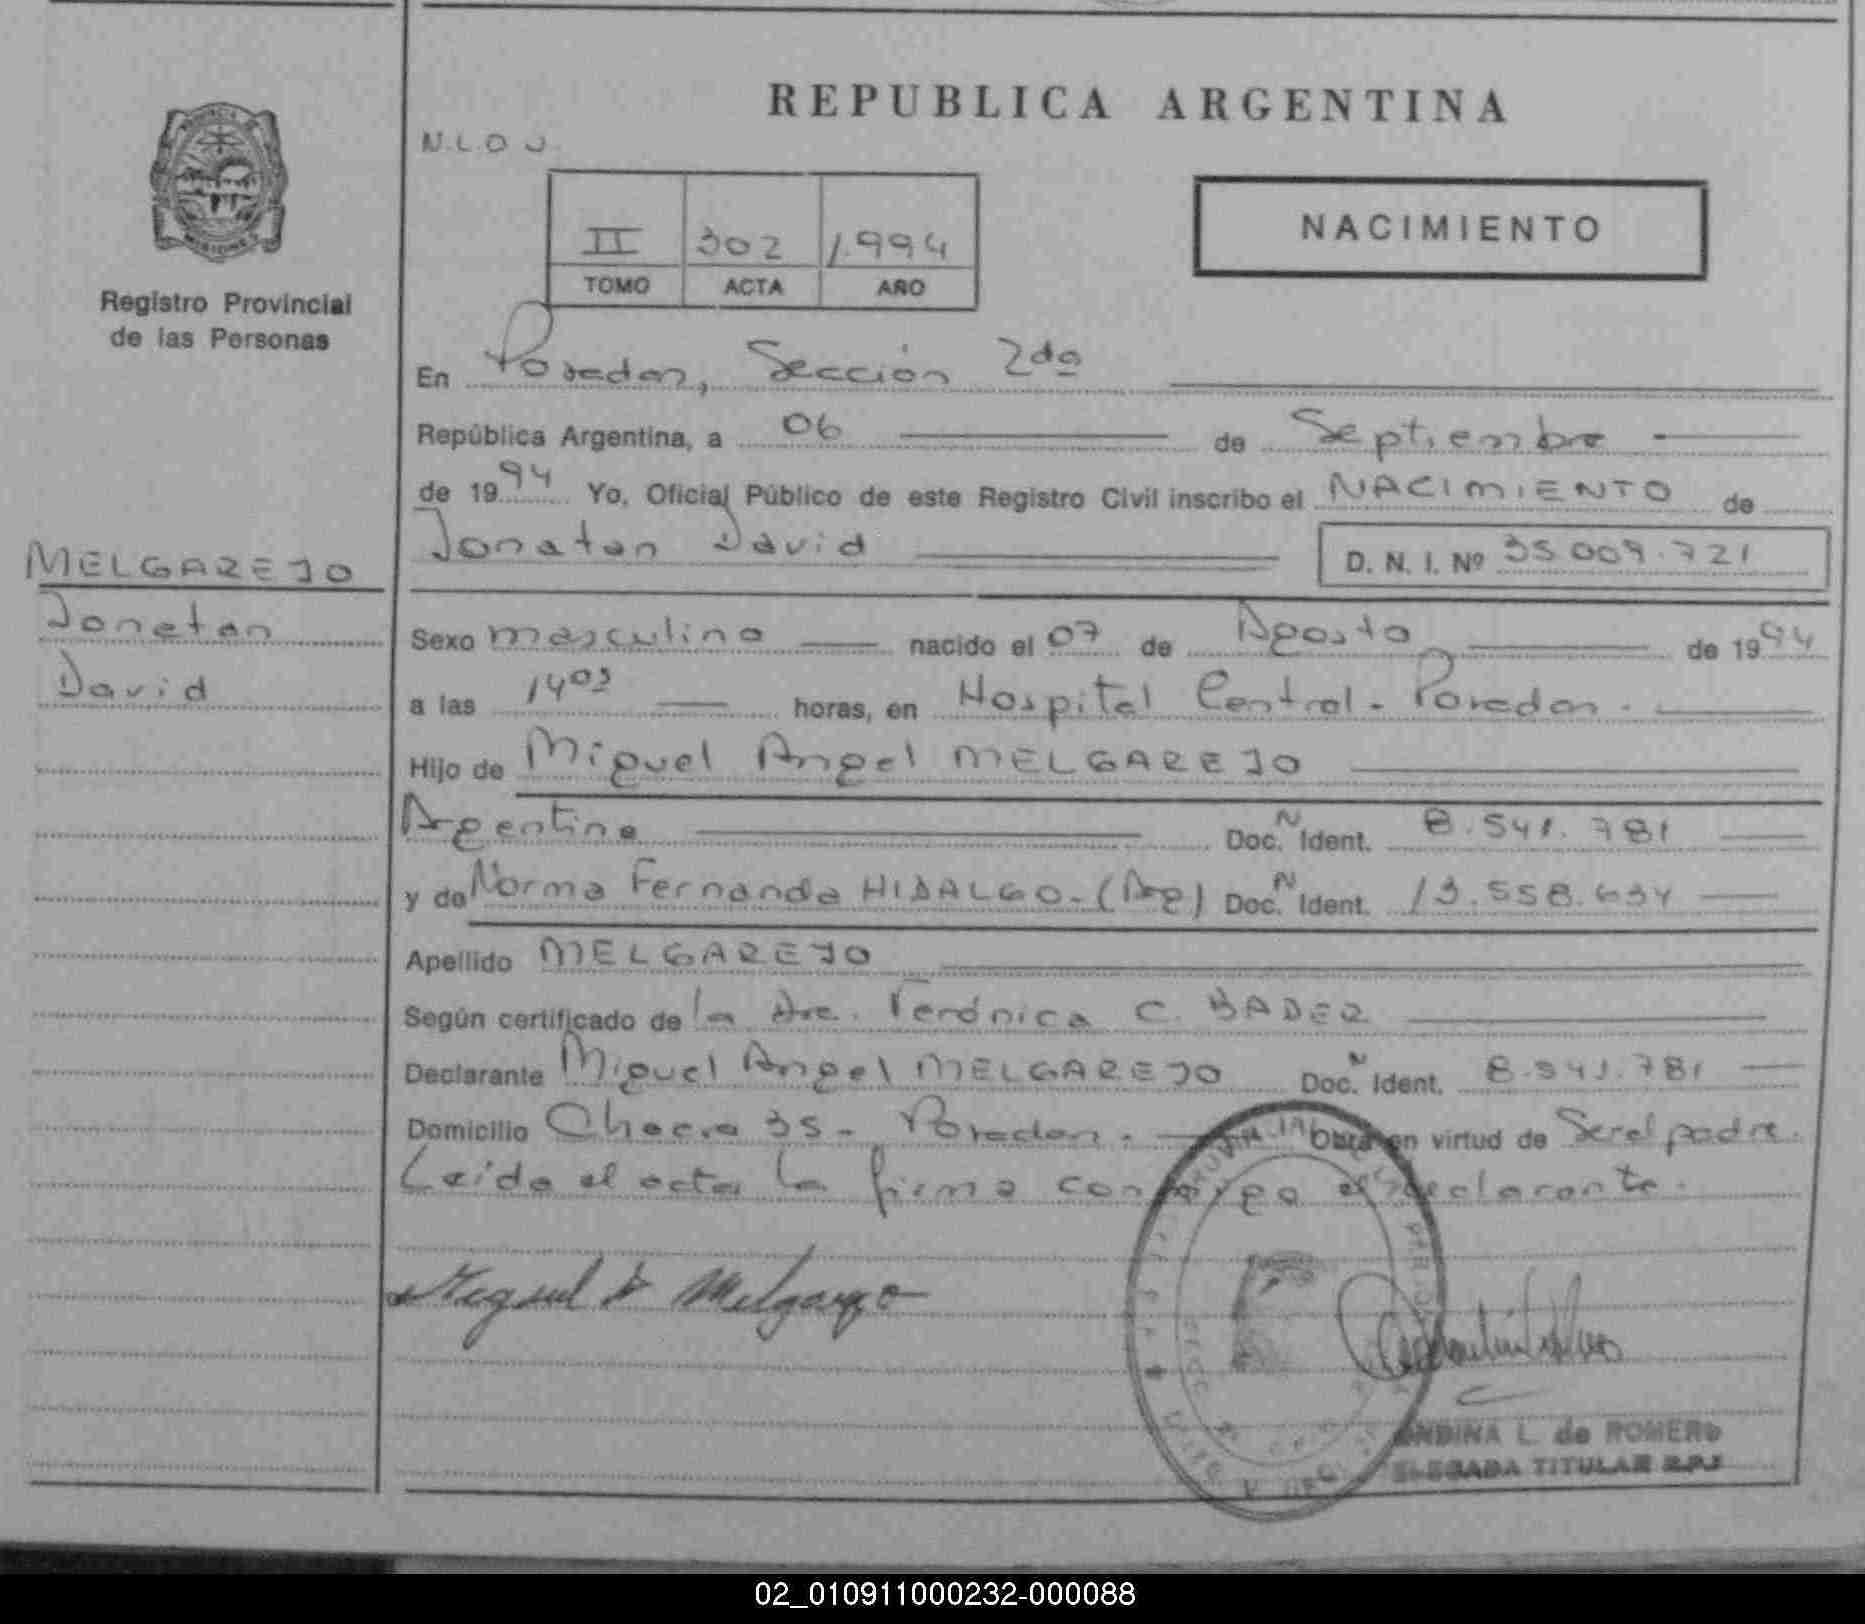 REPUBLICA ARGENTINA
N.L.O J.
II 302 1.994
TOMO ACTA AÑO
NACIMIENTO
MISIONES
Registro Provincial
de las Personas
En Posadas, Sección 2da
República Argentina, a 06 de Septiembre
de 1994 Yo, Oficial Público de este Registro Civil inscribo el NACIMIENTO de
Jonatan David D. N. I. Nº 35.009.721
MELGAREJO
Jonatan
David
Sexo masculino nacido el 07 de Agosto de 1994
a las 14 05 horas, en Hospital Central - Posadas.
Hijo de Miguel Angel MELGAREJO
Argentino Doc. N Ident. 8.541.781
y de Norma Fernanda HIDALGO - (Arg) Doc. N Ident. 13.558.634
Apellido MELGAREJO
Según certificado de la Dra. Verónica C. BADER
Declarante Miguel Angel MELGAREJO Doc. N Ident. 8.541.781
Domicilio Chacra 35 - Posadas. Obra en virtud de Ser el padre.
Leída el acta la firma conmigo el declarante.
Miguel A Melgarejo
ONDINA L. de ROMERO
DELEGADA TITULAR R.P.P
02_010911000232-000088